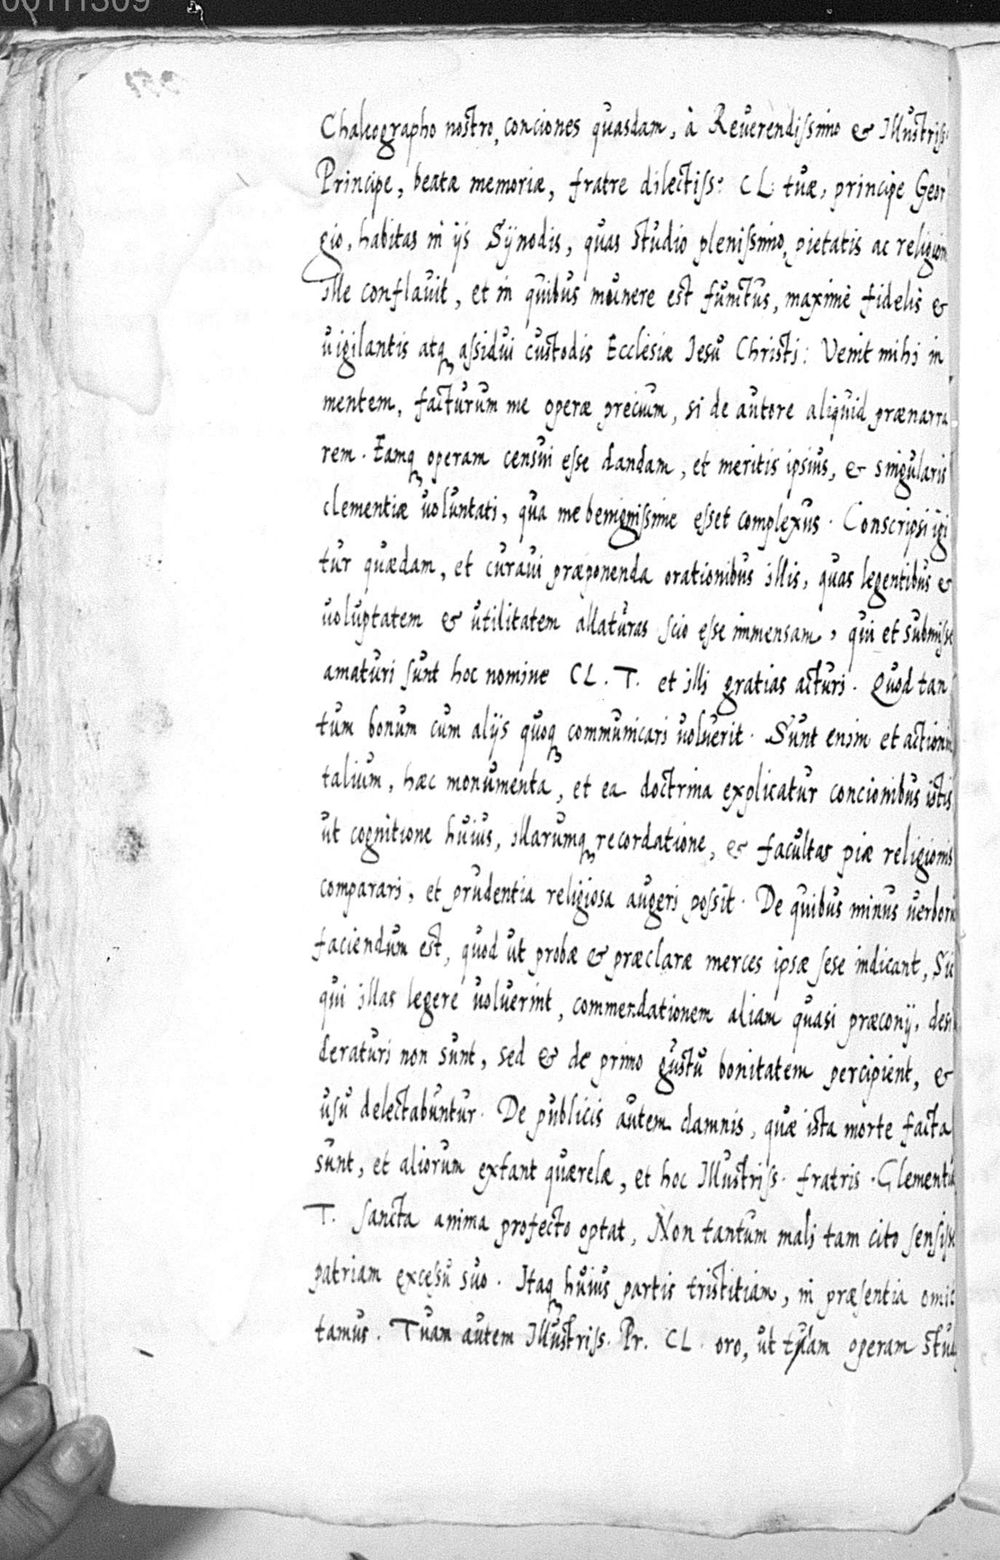 00111309
Chalcographo nostro, conciones quasdam, à Reuerendissimo & Illustriss.
Principe, beatæ memoriæ, fratre dilectiss: CL: tuæ, principe Geor
gio, habitas in ijs Sÿnodis, quas studio plenissimo, pietatis ac religion
ille conflauit, et in quibus munere est functus, maximè fidelis &
uigilantis atq assidui custodis Ecclesiæ Jesu Christi: Venit mihi in
mentem, facturum me operæ precium, si de autore aliquid prænarra
rem. Eamq operam censui esse dandam, et meritis ipsius, & singularis
clementiæ uoluntati, qua me benignissime esset complexus. Conscripsi igi
tur quædam, et curaui præponenda orationibus illis, quas legentibus &
uoluptatem & utilitatem allaturas scio esse immensam, qui et submisse
amaturi sunt hoc nomine CL. T. et illi gratias acturi. Quod tan
tum bonum cum alijs quoq communicari uoluerit. Sunt enim et actionum
talium, hæc monumenta, et ea doctrina explicatur concionibus istis
ut cognitione huius, illarumq recordatione, & facultas piæ religionis
comparari, et prudentia religiosa augeri possit. De quibus minus uerborum
faciendum est, quod ut probæ & præclaræ merces ipsæ sese indicant, Sic
qui illas legere uoluerint, commendationem aliam quasi præconij, desi
deraturi non sunt, sed & de primo gustu bonitatem percipient, &
usu delectabuntur. De publicis autem damnis, quæ ista morte facta
sunt, et aliorum extant quærelæ, et hoc Illustriss. fratris. Clementiæ
T. sancta anima profecto optat, Non tantum mali tam cito sensisse
patriam excessu suo. Itaq huius partis tristitiam, in præsentia omit
tamus. Tuam autem Illustriss. Pr. CL. oro, ut tuam operam